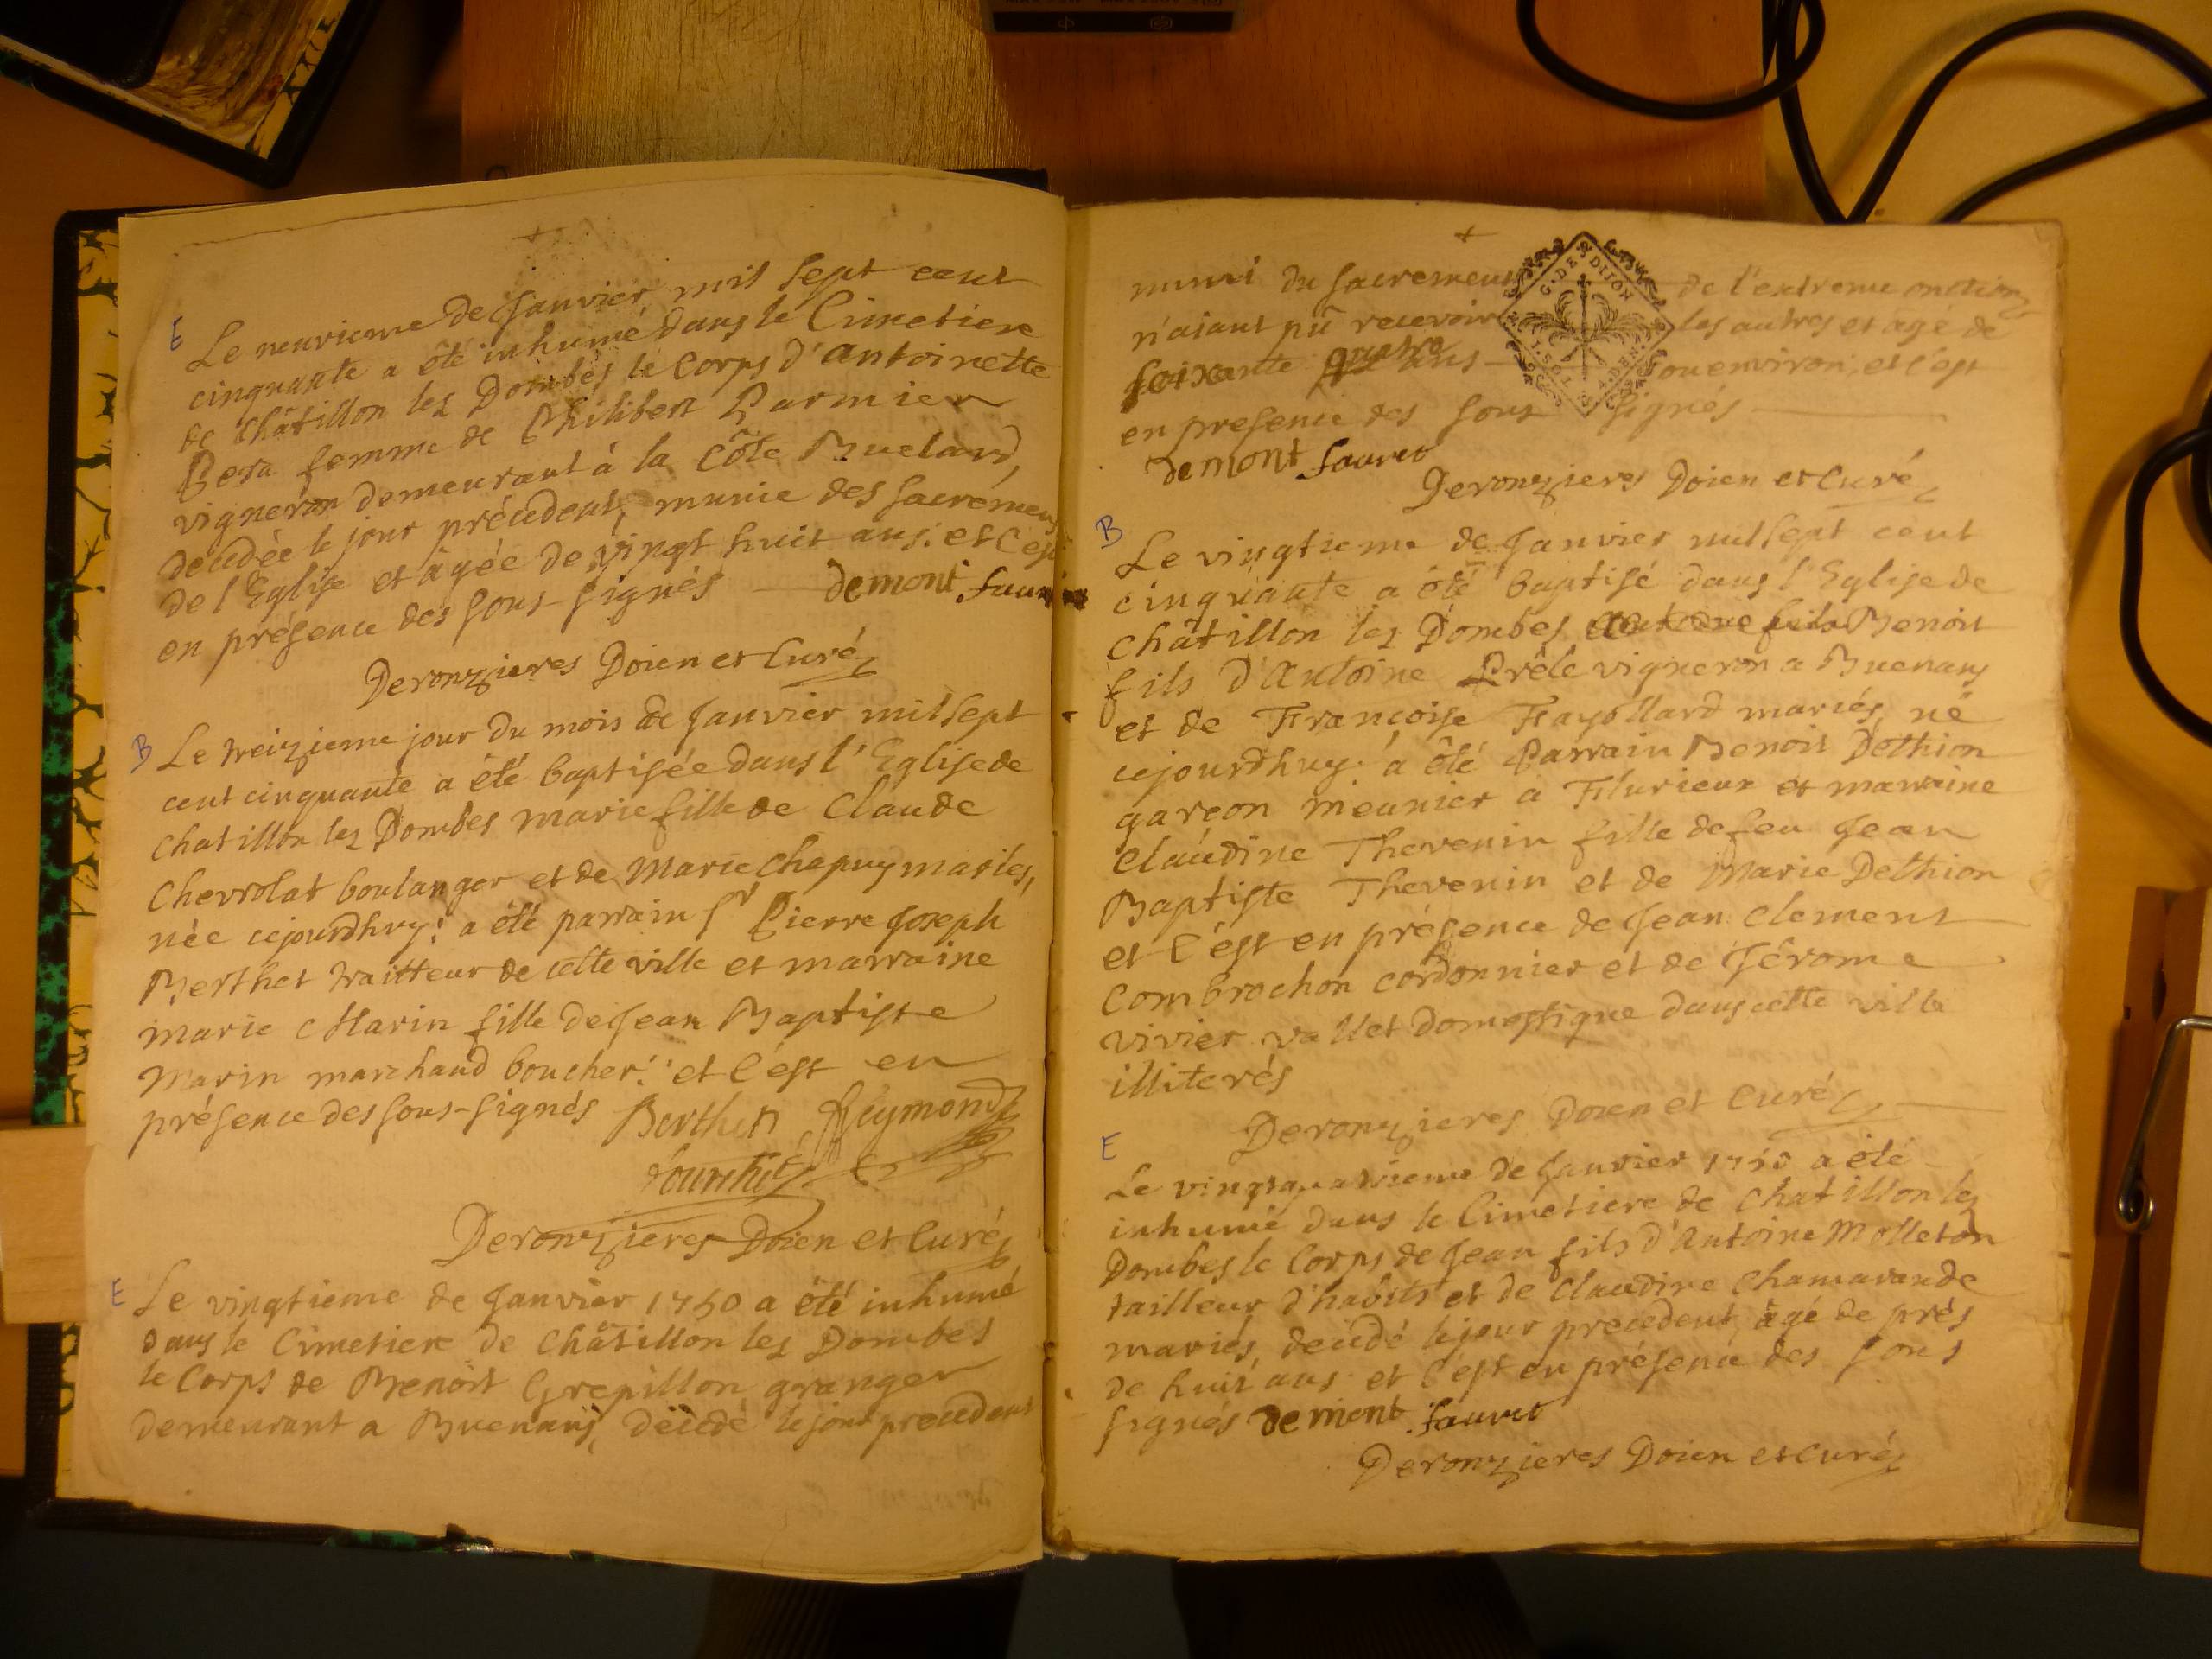 E
Le neuvieme de Janvier mil sept cent
cinquante a été inhumé dans le Cimetiere
de Châtillon lez Dombes le Corps d'antoinette
Pera femme de Philibert Parmier
vigneron demeurant à la Côte Buelard,
décédée le jour précédent, munie des sacrémens
de l'Eglise et âgée de vingt huit ans. et c'est
en présence des sous-signés — demont fauret
Deronzieres Doien et Curé
B
Le treizieme jour du mois de Janvier mil sept
cent cinquante a été baptisée dans l'Eglise de
Chatillon lez Dombes marie fille de Claude
Chevrolat boulanger et de Marie Chapuy mariés,
née cejourdhuy: a été parrain Sr Pierre Joseph
Berthet traitteur de cette ville et marraine
Marie Marin fille de Jean Baptiste
Marin marchand boucher: et c'est en
présence des sous-signés Berthet Reymond
Deronzieres Doien et Curé
E
Le vingtieme de Janvier 1750 a été inhumé
dans le Cimetiere de Châtillon lez Dombes
le Corps de Benoit Grepillon granger
demeurant a Buenans, décédé le jour precedent
muni du sacrement de l'extreme onction
n'aiant pû recevoir les autres et agé de
soixante quatre ans — ou environ, et c'est
en presence des sous signés —
demont fauret
Deronzieres Doien et Curé
B
Le vingtieme de Janvier mil sept cent
cinquante a été baptisé dans l'Eglise de
Châtillon lez Dombes Benoit
fils d'Antoine Prêle vigneron a Buenans
et de Françoise Frayollard mariés, né
cejourdhuy: a été Parrain Benoit Dethion
garçon meunier a Flurieux et marraine
Claudine Thevenin fille de feu Jean
Baptiste Thevenin et de Marie Dethion
et c'est en présence de Jean Clement
Combrochon cordonnier et de Jérome
vivier vallet domestique dans cette ville
illiterés
Deronzieres Doien et Curé
E
Le vingtquatrieme de Janvier 1750 a été
inhumé dans le Cimetiere de Chatillon lez
Dombes le Corps de Jean fils d'Antoine Molleton
tailleur d'habits et de Claudine Chamarande
mariés, décédé le jour precedent, âgé de près
de huit ans et c'est en présence des sous
signés demont fauret
Deronzieres Doien et Curé